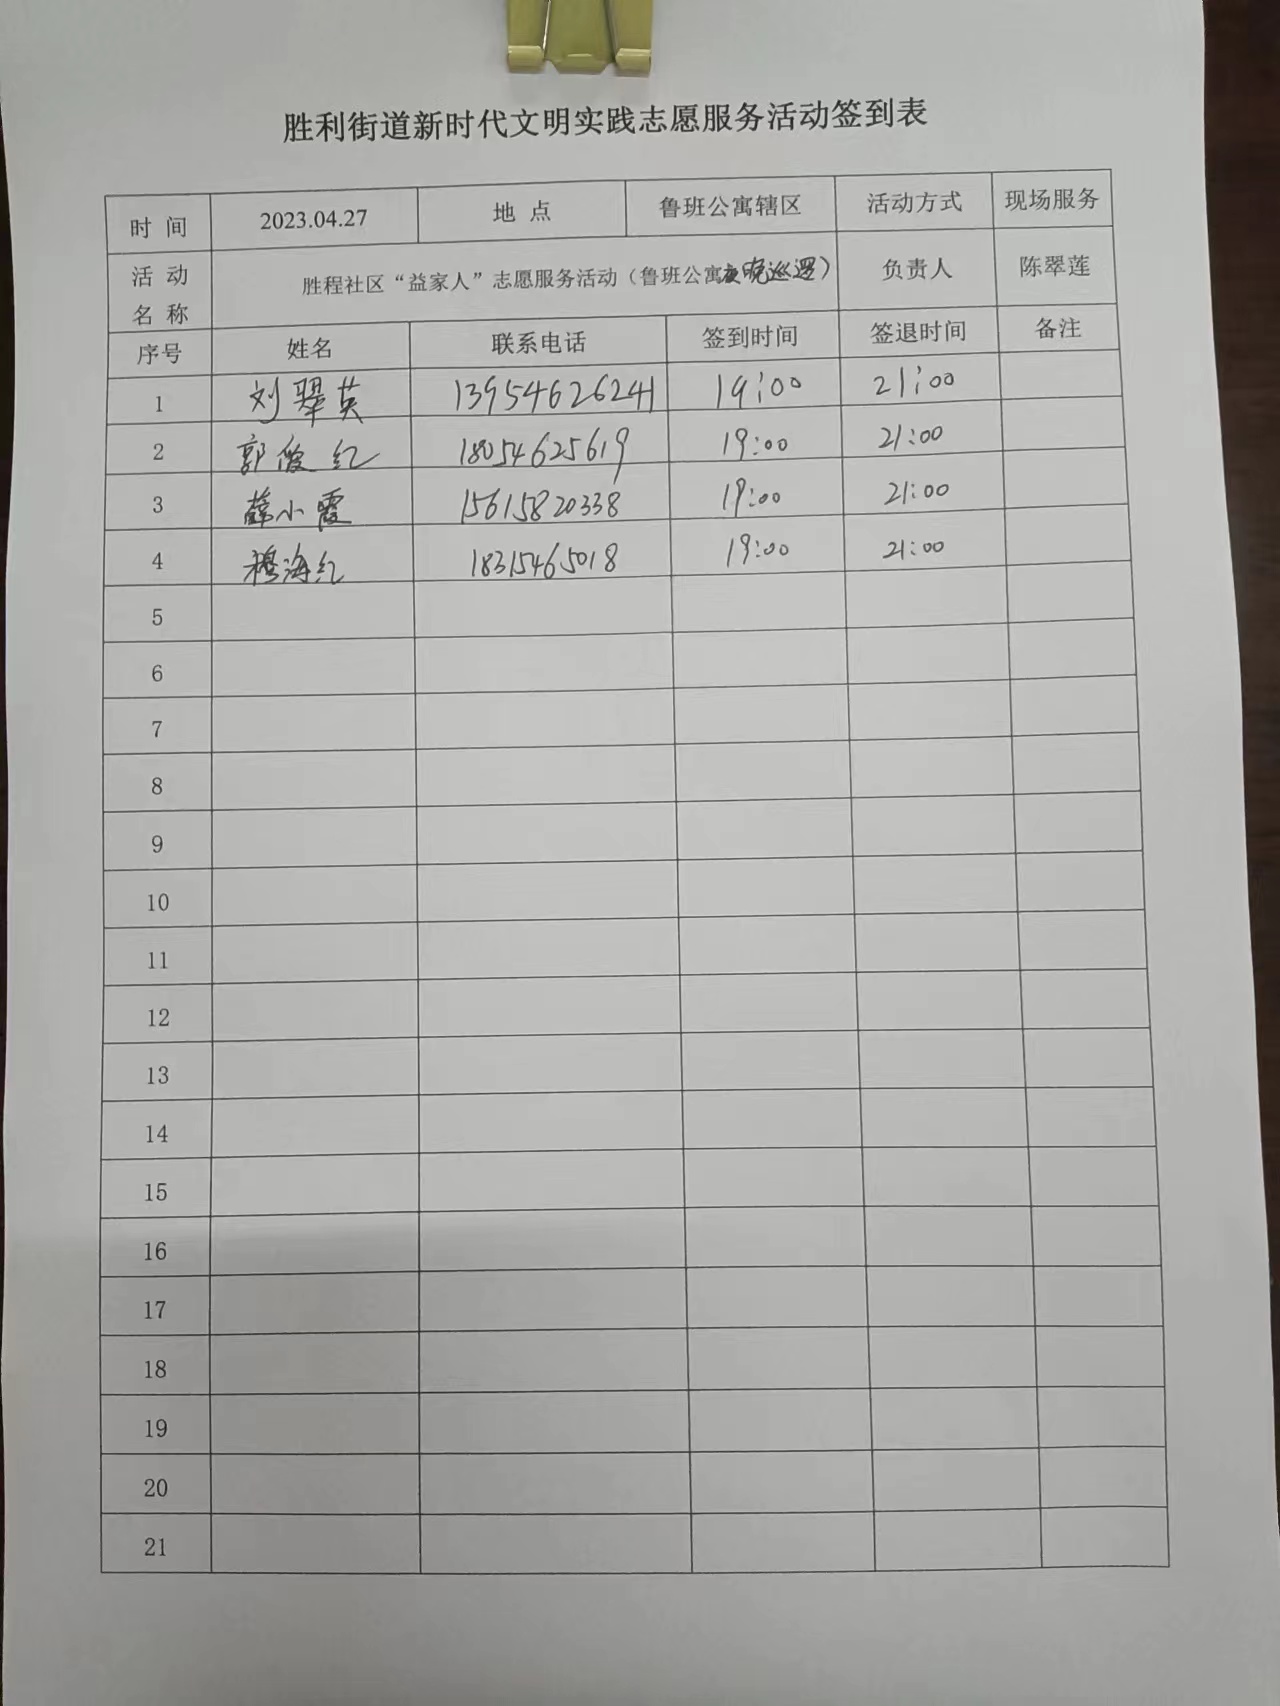 胜利街道新时代文明实践志愿服务活动签到表
时 间 2023.04.27 地 点 鲁班公寓辖区 活动方式 现场服务
活 动
名 称 胜程社区“益家人”志愿服务活动（鲁班公寓夜晚巡逻） 负责人 陈翠莲
序号 姓名 联系电话 签到时间 签退时间 备注
1 刘翠英 13954626241 19:00 21:00
2 郭俊红 18054625619 19:00 21:00
3 薛小霞 15615820338 19:00 21:00
4 穆海红 18315465018 19:00 21:00
5
6
7
8
9
10
11
12
13
14
15
16
17
18
19
20
21